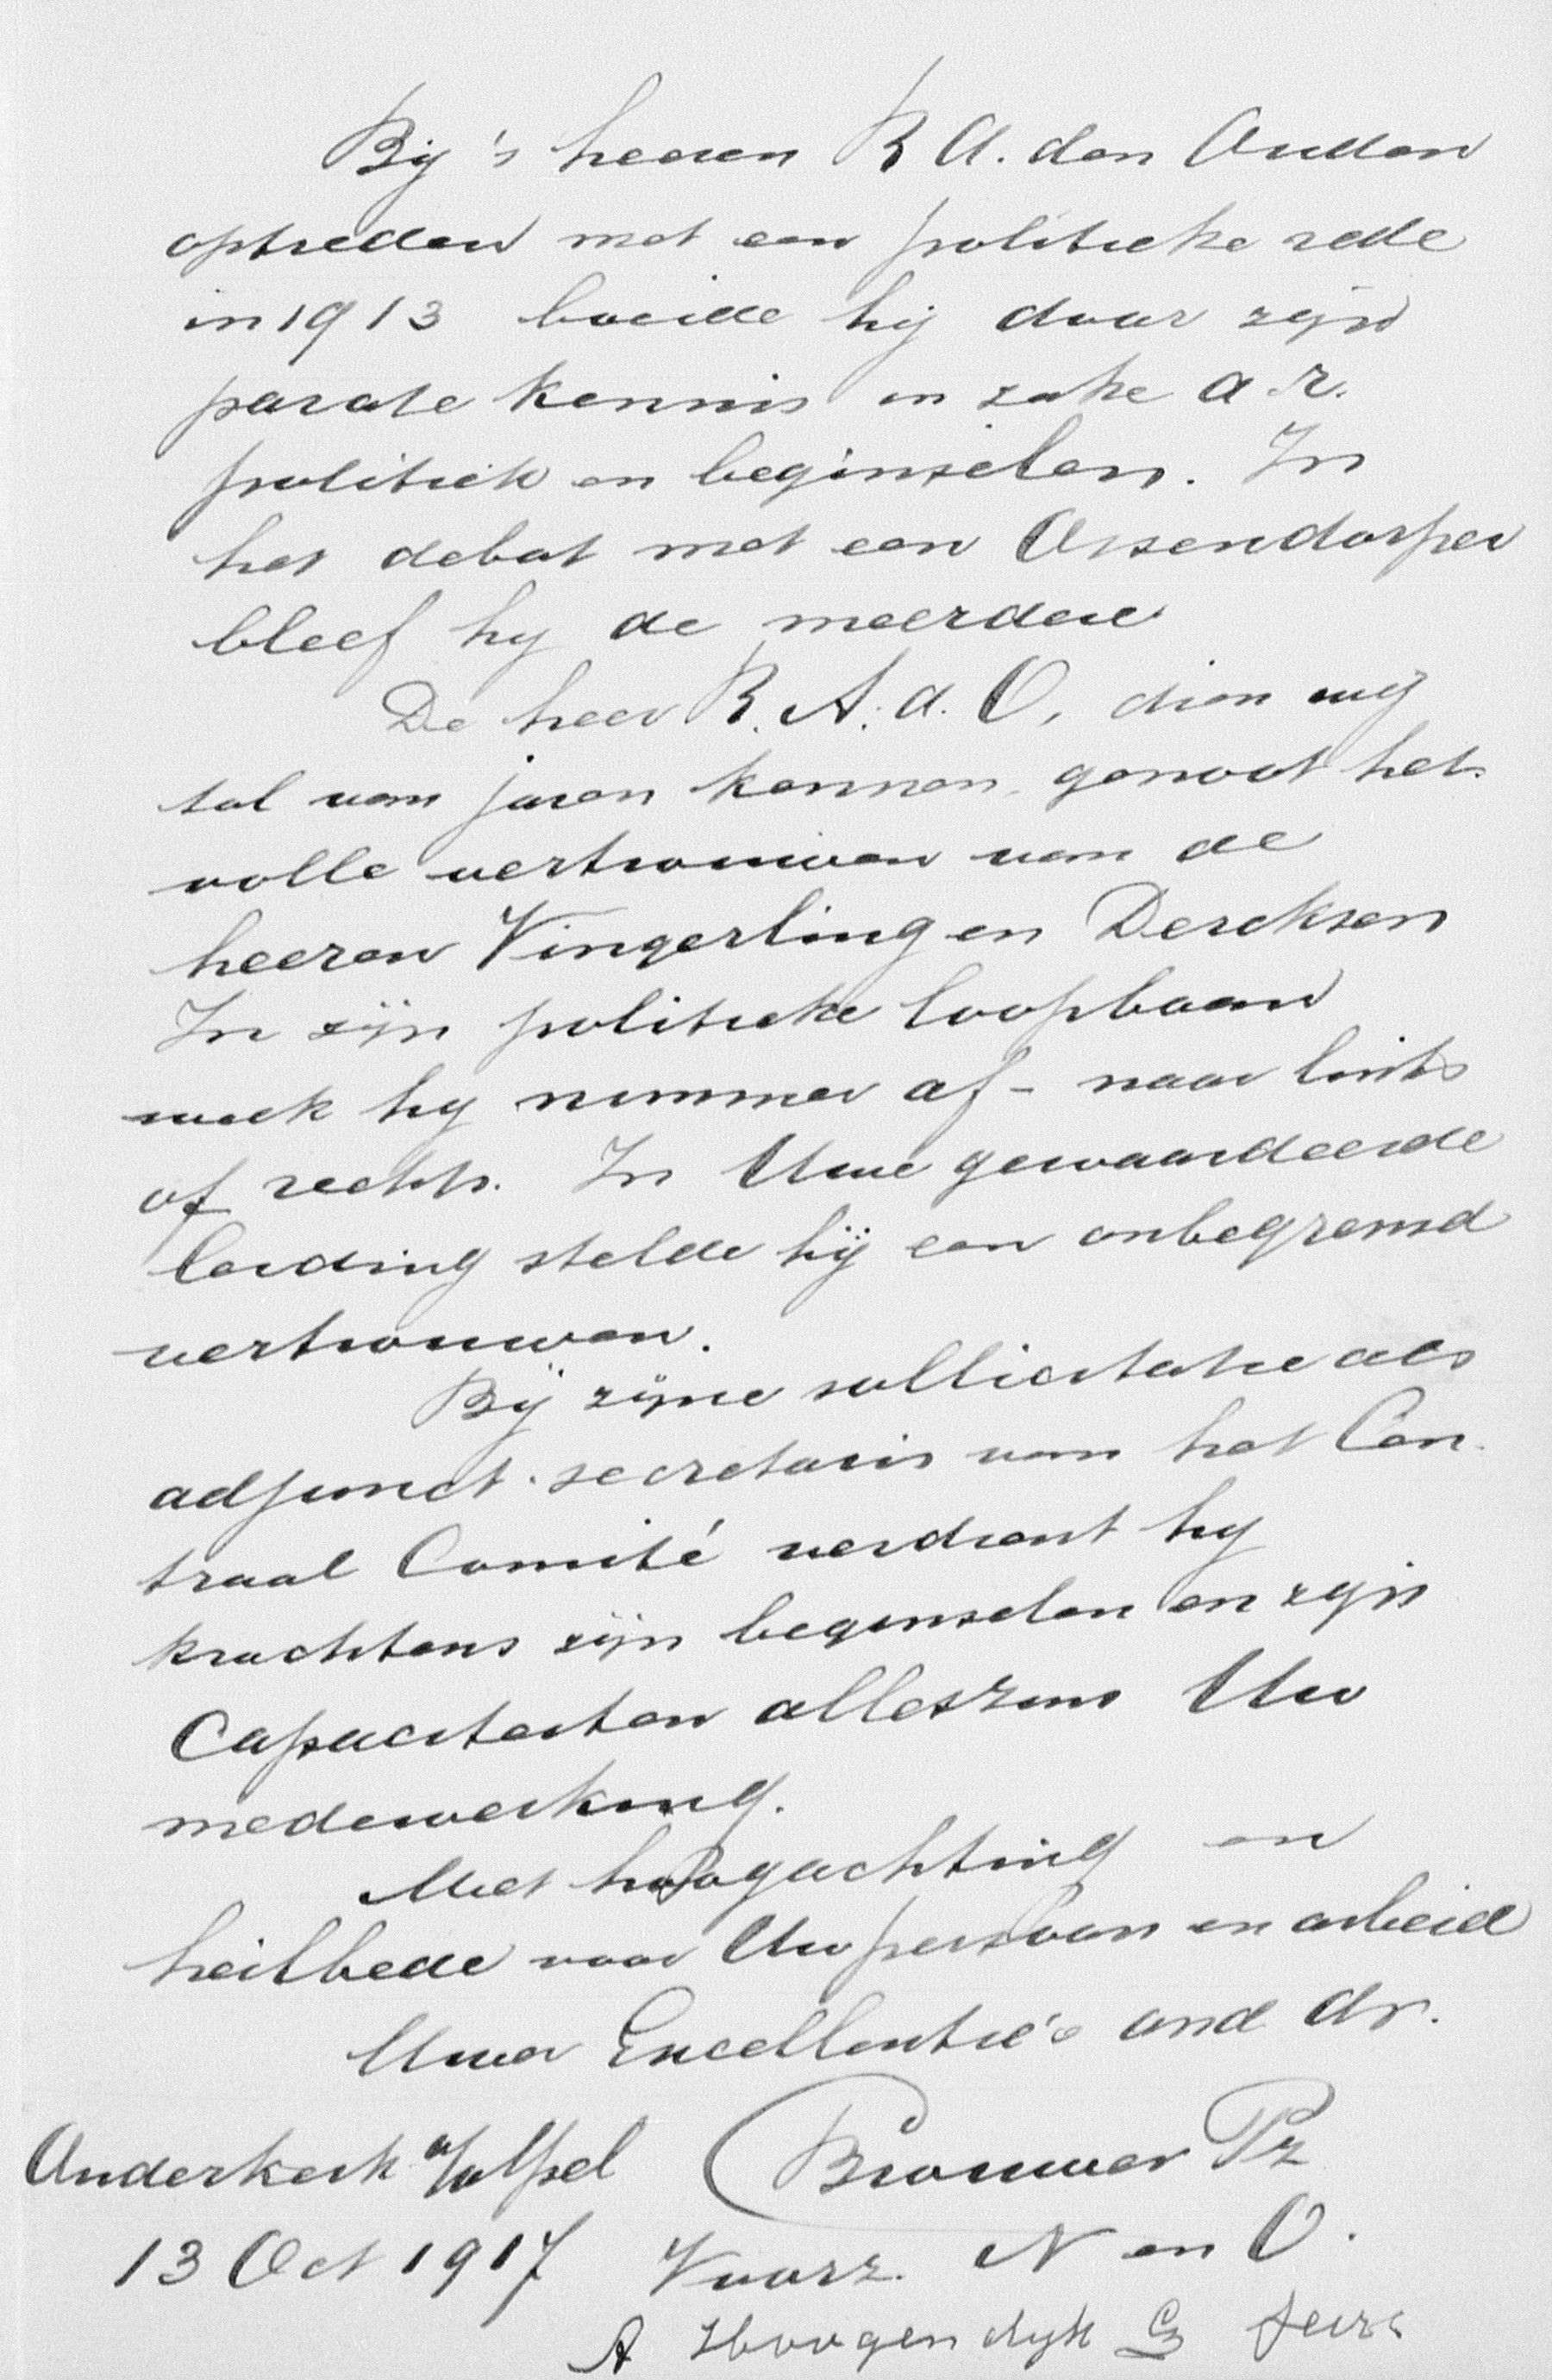 Bij 's heeren R A. den Ouden
optreden met een politieke rede
in 1913 boeide hij door zijn
parate kennis in zake a. r.
politiek en beginselen. In
het debat met een Ossendorper
bleef hij de meerdere
De heer R. A. d. O, dien wij
tal van jaren kennen, genoot het
volle vertrouwen van de
heeren Vingerling en Dercksen
In zijn politieke loopbaan
week hij nimmer af - naar links
of rechts. In Uwe gewaardeerde
leiding stelde hij een onbegrensd
vertrouwen.
Bij zijne sollicitatie als
adjunct-secretaris van het Cen
traal Comité verdient hij
krachtens zijn beginselen en zijn
Capaciteiten alleszins Uw
medewerking.
Met hoogachting en
heilbede voor Uw persoon en arbeid
Uwer Excellentie's ond dr.
Ouderkerk a/d IJsel Brouwer Pz
13 Oct 1917 Voorz. N en O.
A Hoogendijk Gz Secrs